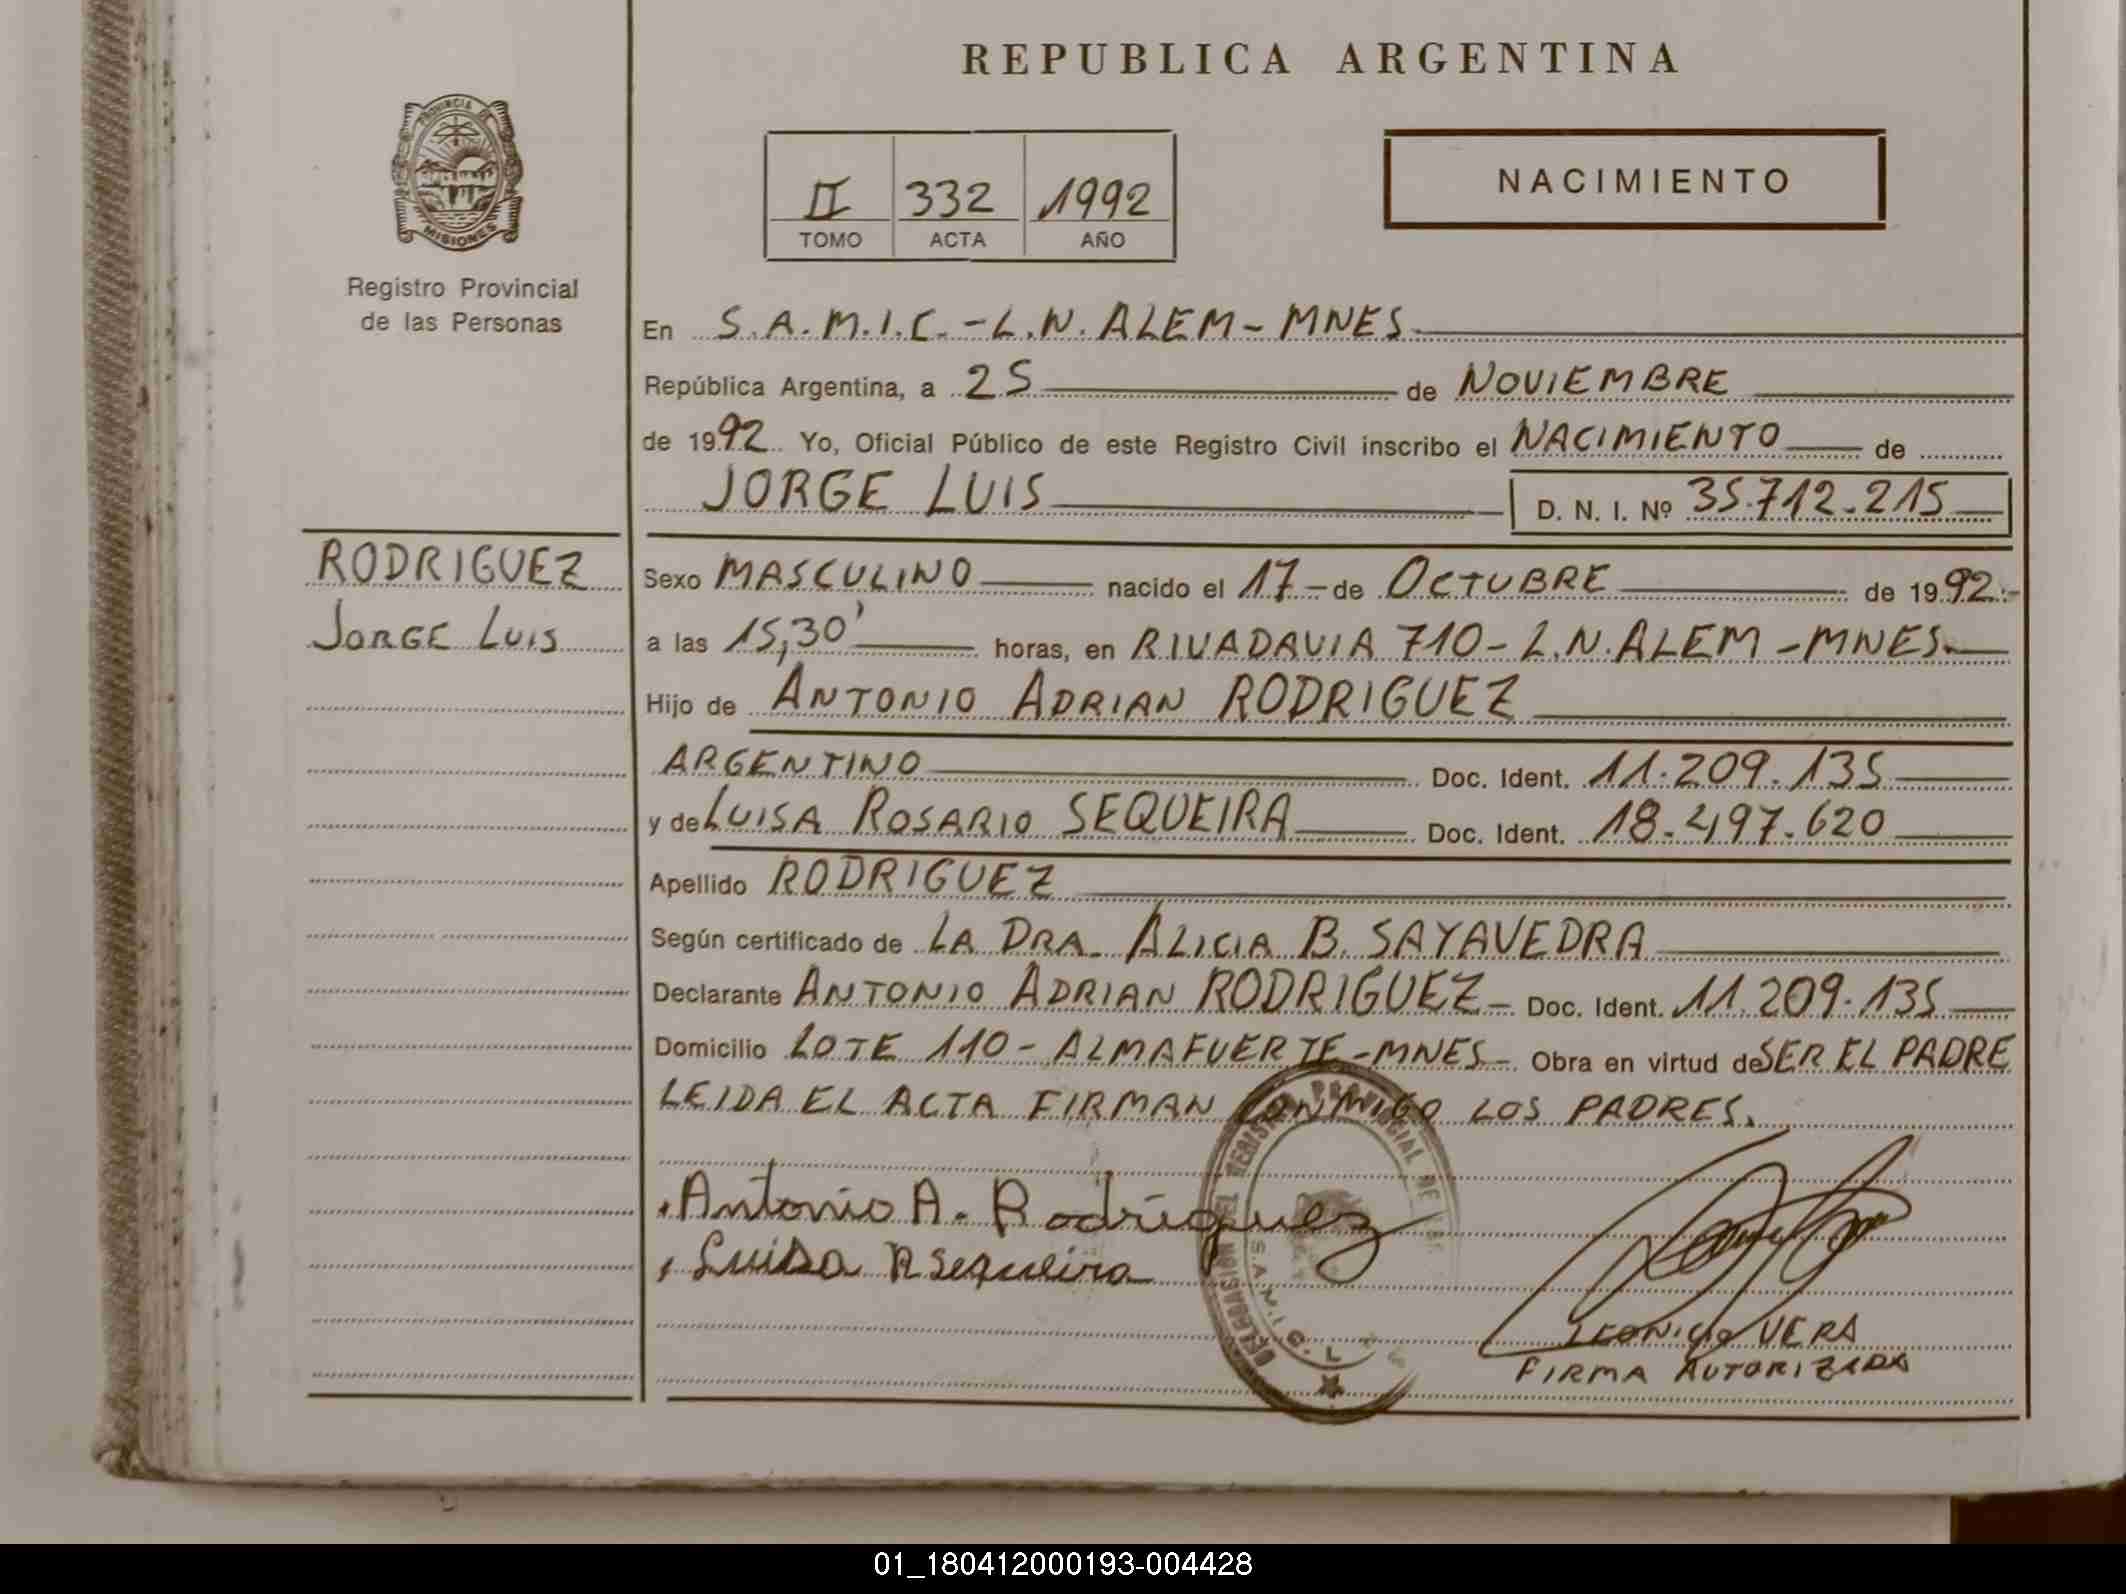 REPUBLICA ARGENTINA
PROVINCIA DE
MISIONES
Registro Provincial
de las Personas
II 332 1992
TOMO ACTA AÑO
NACIMIENTO
En S.A.M.I.C.-L.N.ALEM-MNES
República Argentina, a 25 de NOVIEMBRE
de 1992 Yo, Oficial Público de este Registro Civil inscribo el NACIMIENTO de
JORGE LUIS D. N. I. Nº 35.712.215
RODRIGUEZ
JORGE LUIS
Sexo MASCULINO nacido el 17-de OCTUBRE de 1992.-
a las 15,30' horas, en RIVADAVIA 710-L.N.ALEM-MNES.
Hijo de ANTONIO ADRIAN RODRIGUEZ
ARGENTINO Doc. Ident. 11.209.135
y de LUISA ROSARIO SEQUEIRA Doc. Ident. 18.497.620
Apellido RODRIGUEZ
Según certificado de LA DRA. ALICIA B. SAYAVEDRA
Declarante ANTONIO ADRIAN RODRIGUEZ- Doc. Ident. 11.209.135
Domicilio LOTE 110-ALMAFUERTE-MNES- Obra en virtud de SER EL PADRE
LEIDA EL ACTA FIRMAN CONMIGO LOS PADRES.
Antonio A. Rodriguez
Luisa R Sequeira
DELEGACION DEL REGISTRO PROVINCIAL DE
S.A.M.I.C. L
LEONICIO VERA
FIRMA AUTORIZADA
01_180412000193-004428